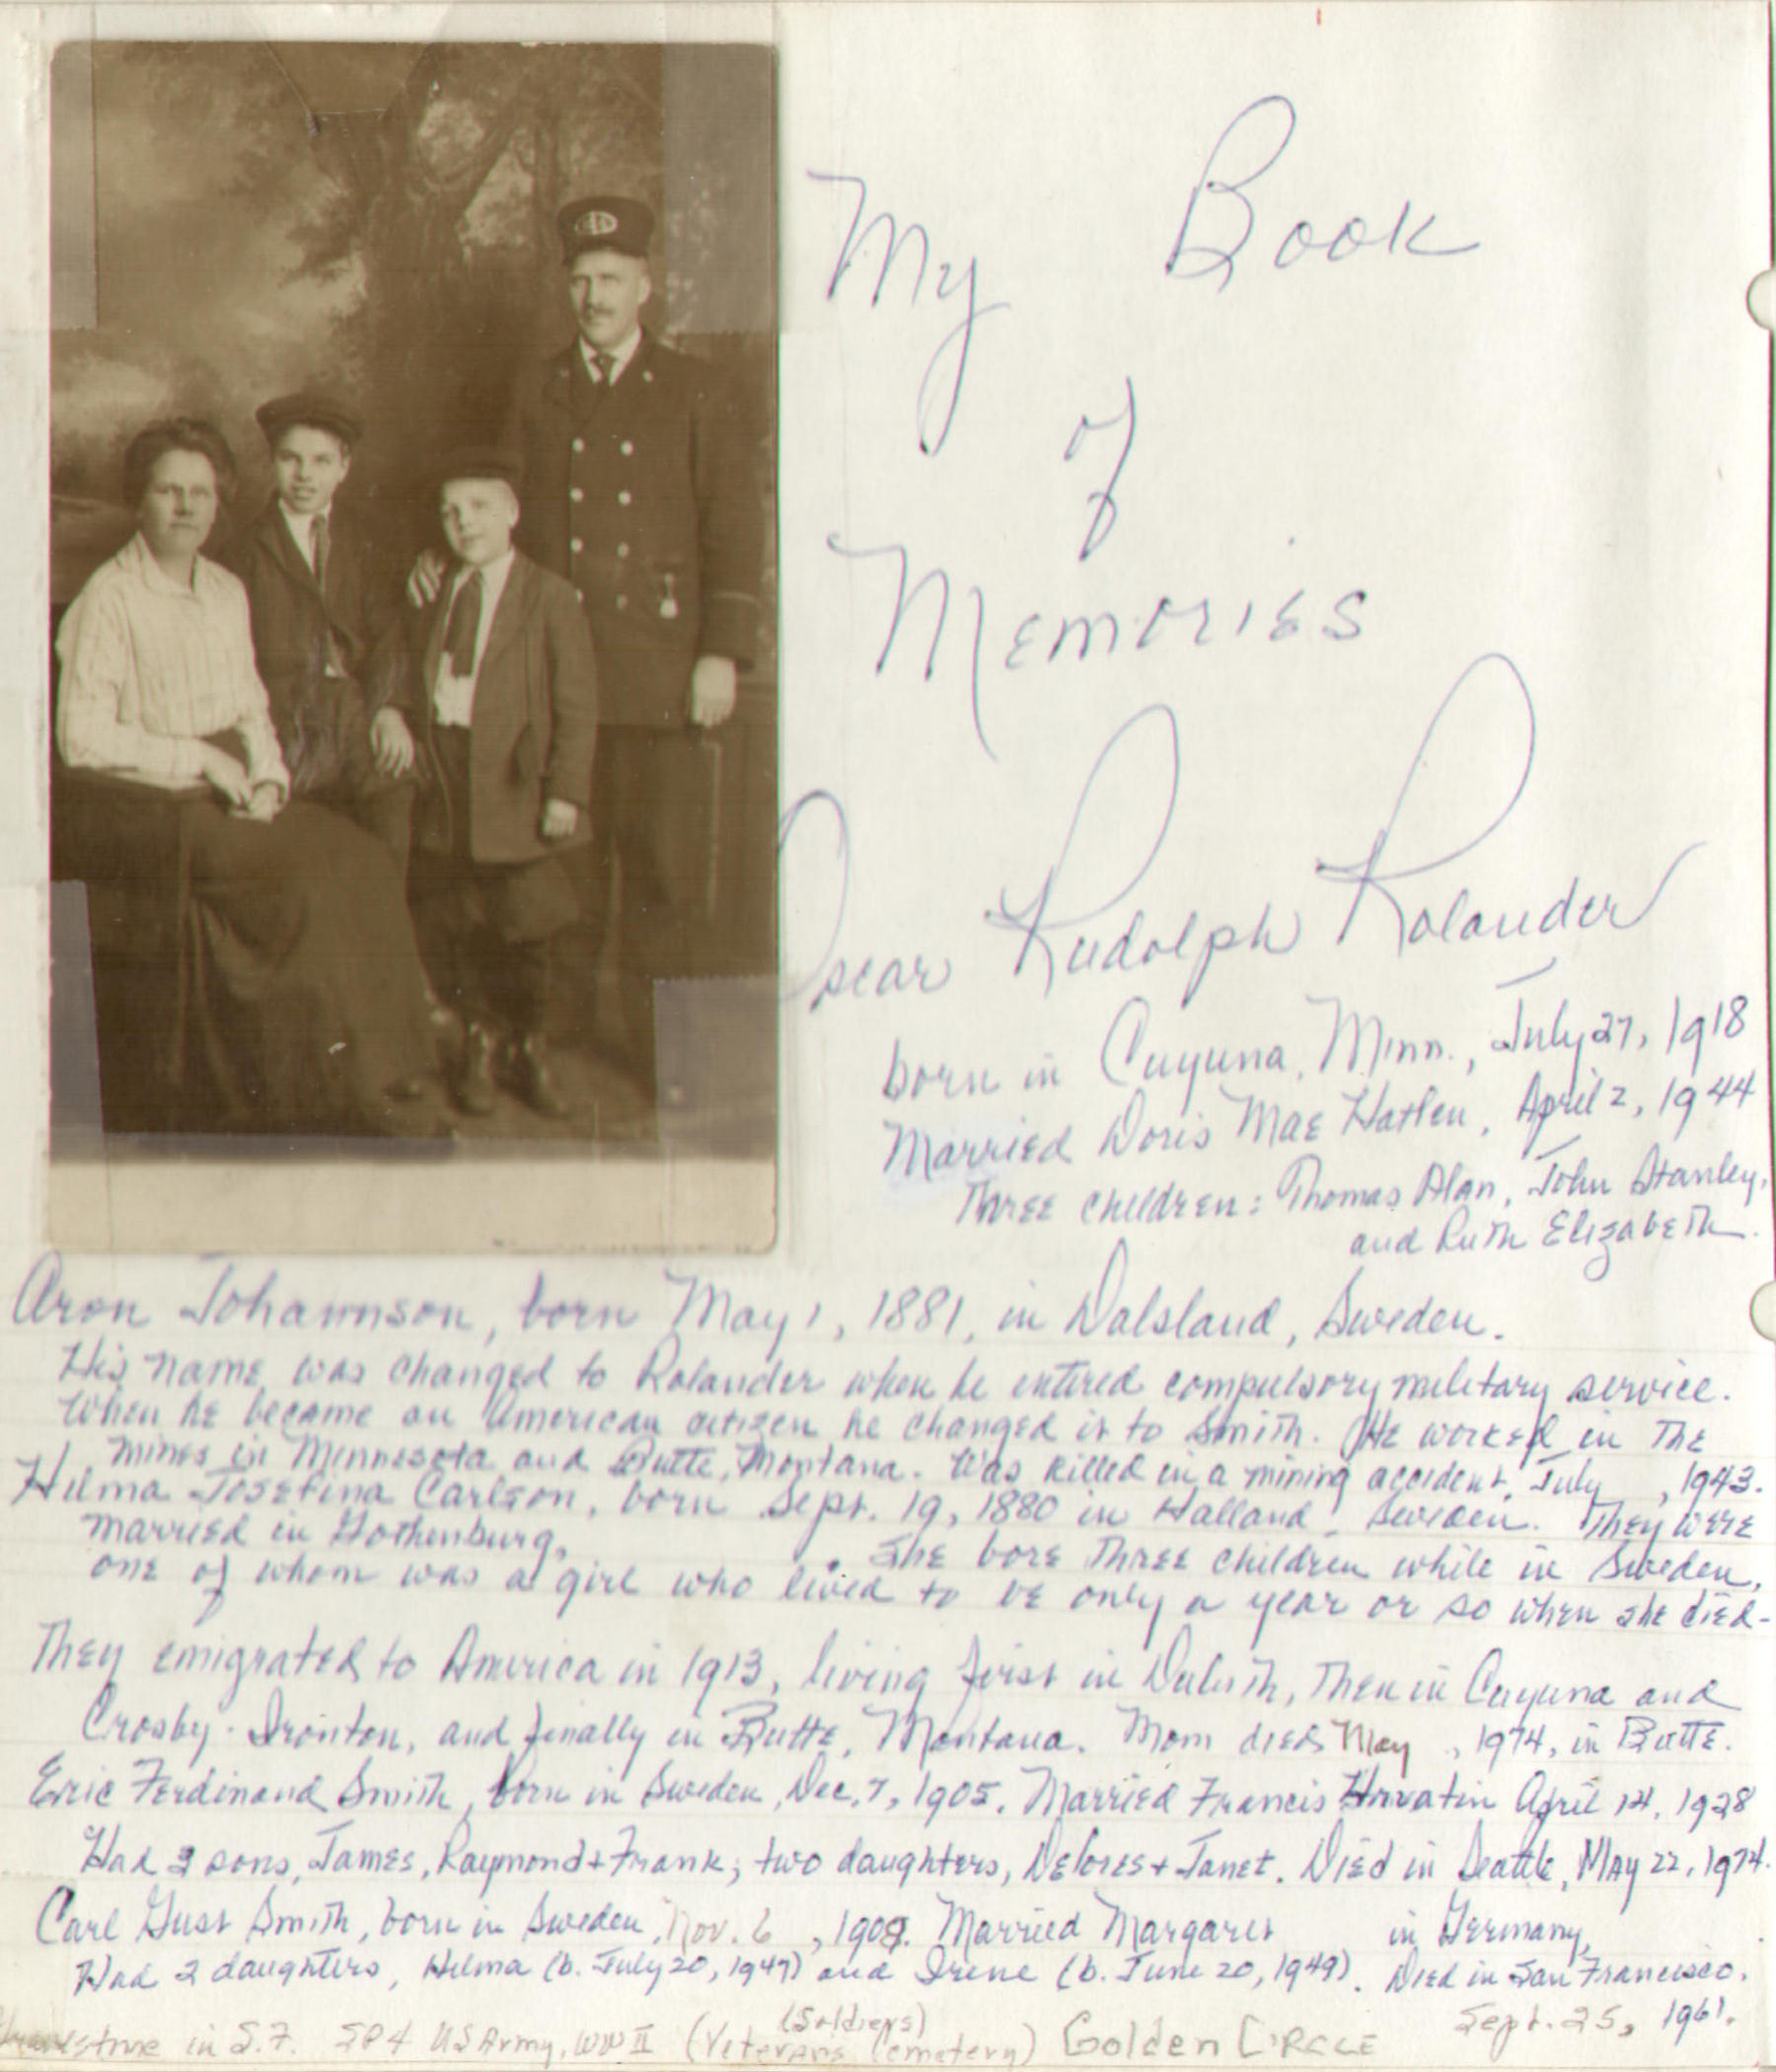 My Book
of
Memories
Oscar Rudolph Rolander
born in Cuyuna, Minn., July 27, 1918
Married Doris Mae Hatlen, April 2, 1944
Three children: Thomas Alan, John Stanley,
and Ruth Elizabeth.
Aron Johannson, born May 1, 1881, in Dalsland, Sweden.
His name was changed to Rolander when he entered compulsory military service.
When he became an American citizen he changed it to Smith. He worked in the
mines in Minnesota and Butte, Montana. Was killed in a mining accident, July , 1943.
Hilma Josefina Carlson, born Sept. 19, 1880 in Halland, Sweden. They were
married in Gothenburg. She bore three children while in Sweden,
one of whom was a girl who lived to be only a year or so when she died-
They emigrated to America in 1913, living first in Duluth, then in Cuyuna and
Crosby-Ironton, and finally in Butte, Montana. Mom died May , 1974, in Butte.
Eric Ferdinand Smith, born in Sweden, Dec. 7, 1905. Married Francis Hrvatin April 14, 1928
Had 3 sons, James, Raymond + Frank; two daughters, Delores + Janet. Died in Seattle, May 22, 1974.
Carl Gust Smith, born in Sweden, Nov. 6 , 1908. Married Margaret in Germany,
Had 2 daughters, Hilma (b. July 20, 1947) and Irene (b. June 20, 1949). Died in San Francisco.
Sept. 25, 1961.
in S.F. SP4 US Army, WW II (Veterans (Soldiers) Cemetery) Golden Circle